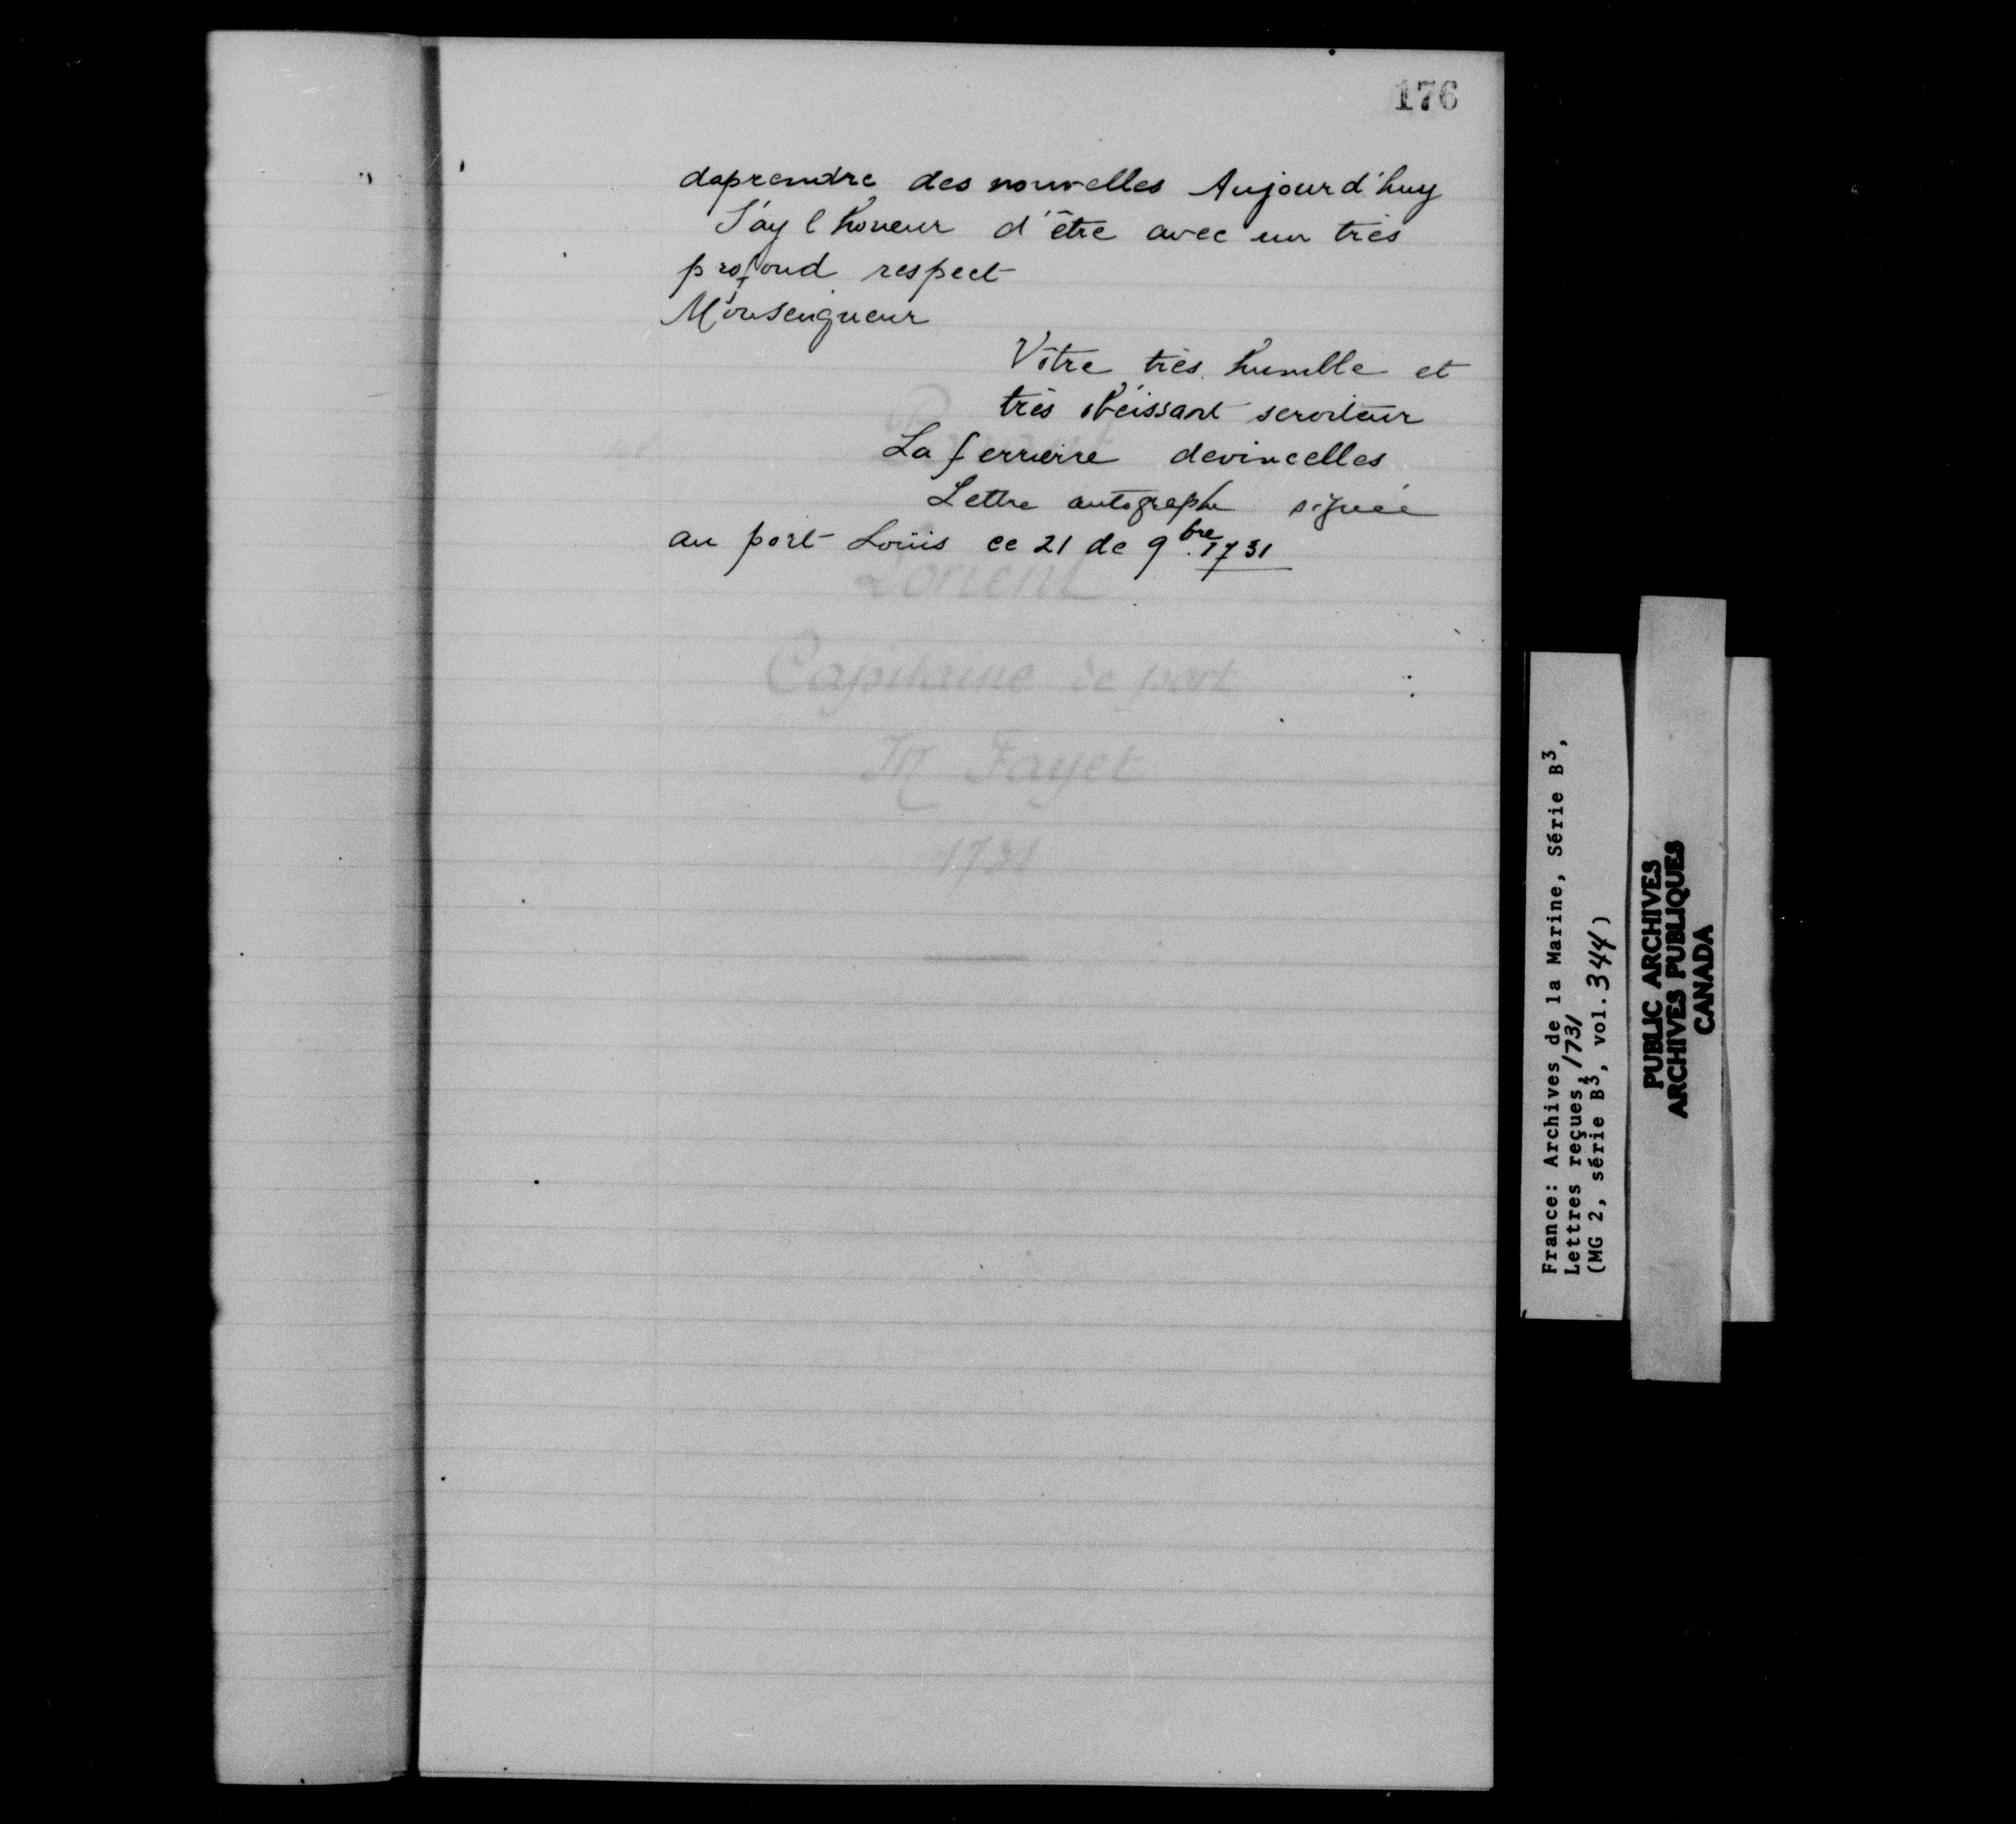 176
daprendre des nouvelles Aujourd'huy
J'ay l honeur d'être avec un très
profond respect
Monseigneur
Vôtre très humble et
très obéissant serviteur
La ferrierre devincelles
Lettre autographe signée
au port Loüis ce 21 de 9bre 1731
Lorient
Capitaine de port
M Fayet
1731
France: Archives de la Marine, Série B3,
Lettres reçues, 1731
(MG 2, série B3, vol. 344)
PUBLIC ARCHIVES
ARCHIVES PUBLIQUES
CANADA